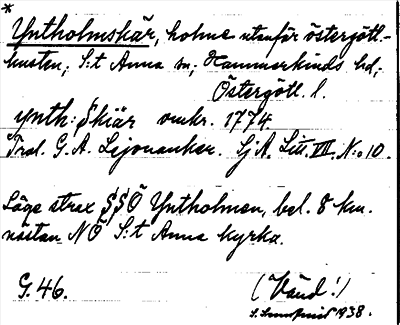 *
Yntholmskär, holme utanför östergöt-
kusten, S:t Anna sn, Hammarkinds hd,
Östergötl. l.
Ynth: Skiär omkr. 1774
Tral. G. A. Lejonanker. Sj.A. Litt. III. N:o 10.
Läge strax SSÖ Yntholmen, bel. 8 km.
nästan NÖ S:t Anna kyrka.
G. 46. (Vänd!)
1938.